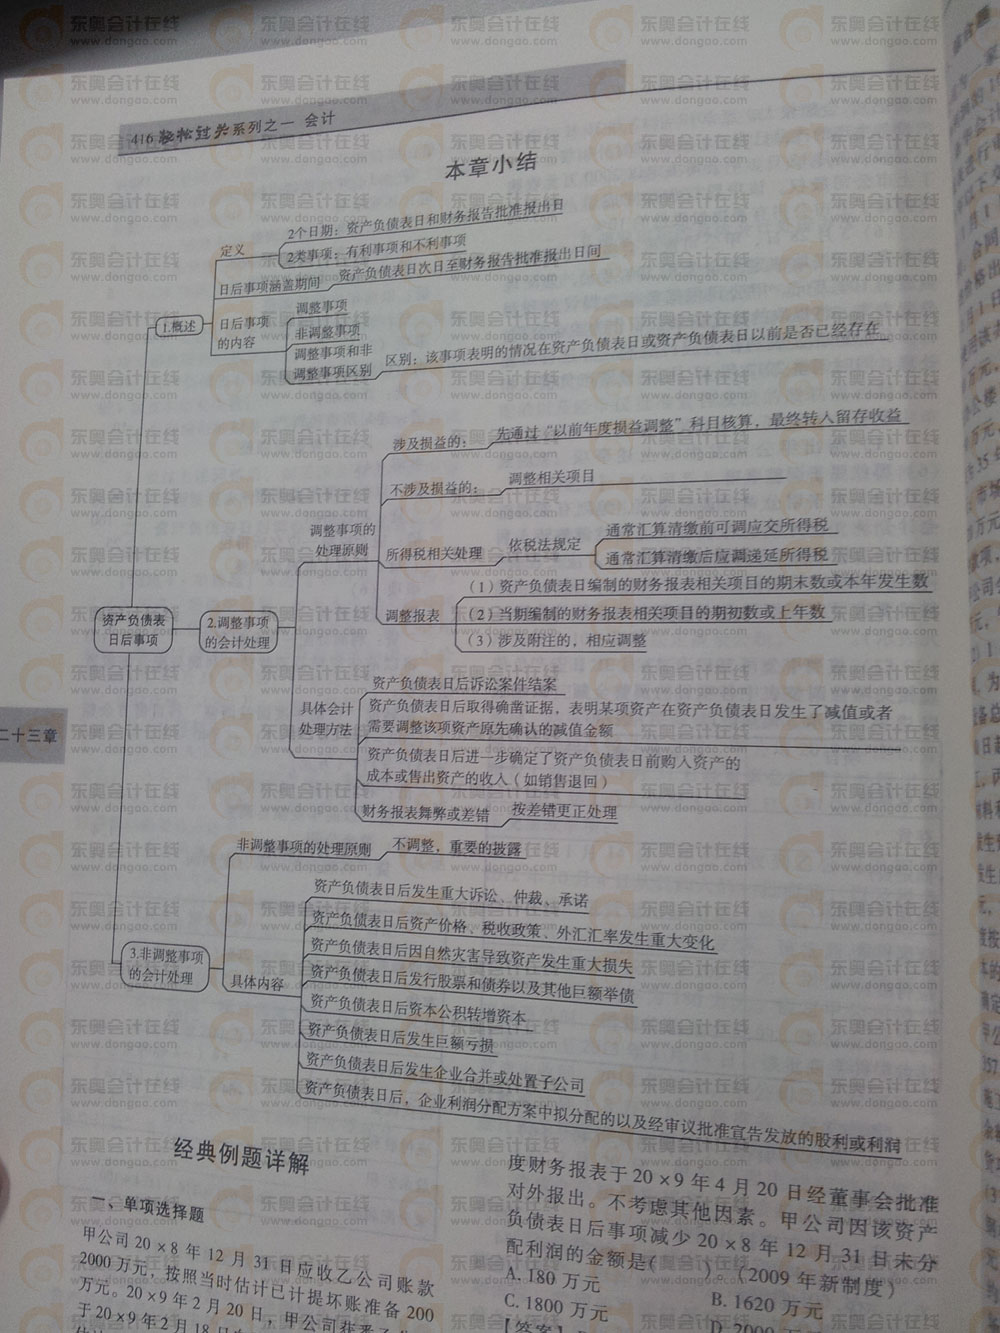 416 轻松过关系列之一 会计
本章小结
定义
2个日期：资产负债表日和财务报告批准报出日
2类事项：有利事项和不利事项
日后事项涵盖期间
资产负债表日次日至财务报告批准报出日间
1.概述
日后事项
的内容
调整事项
非调整事项
调整事项和非
调整事项区别
区别：该事项表明的情况在资产负债表日或资产负债表日以前是否已经存在
资产负债表
日后事项
2.调整事项
的会计处理
调整事项的
处理原则
涉及损益的：
先通过“以前年度损益调整”科目核算，最终转入留存收益
不涉及损益的：
调整相关项目
所得税相关处理
依税法规定
通常汇算清缴前可调应交所得税
通常汇算清缴后应调递延所得税
调整报表
（1）资产负债表日编制的财务报表相关项目的期末数或本年发生数
（2）当期编制的财务报表相关项目的期初数或上年数
（3）涉及附注的，相应调整
具体会计
处理方法
资产负债表日后诉讼案件结案
资产负债表日后取得确凿证据，表明某项资产在资产负债表日发生了减值或者
需要调整该项资产原先确认的减值金额
资产负债表日后进一步确定了资产负债表日前购入资产的
成本或售出资产的收入（如销售退回）
财务报表舞弊或差错
按差错更正处理
二十三章
3.非调整事项
的会计处理
非调整事项的处理原则
不调整，重要的披露
具体内容
资产负债表日后发生重大诉讼、仲裁、承诺
资产负债表日后资产价格、税收政策、外汇汇率发生重大变化
资产负债表日后因自然灾害导致资产发生重大损失
资产负债表日后发行股票和债券以及其他巨额举债
资产负债表日后资本公积转增资本
资产负债表日后发生巨额亏损
资产负债表日后发生企业合并或处置子公司
资产负债表日后，企业利润分配方案中拟分配的以及经审议批准宣告发放的股利或利润
经典例题详解
一、单项选择题
甲公司20×8年12月31日应收乙公司账款
2000万元，按照当时估计已计提坏账准备200
万元。20×9年2月20日，甲公司获悉乙
于20×9年2月18日
度财务报表于20×9年4月20日经董事会批准
对外报出。不考虑其他因素。甲公司因该资产
负债表日后事项减少20×8年12月31日未分
配利润的金额是（ ）。（2009年新制度）
A. 180万元
B. 1620万元
C. 1800万元
D. 2000
【答案】
东奥会计在线
www.dongao.com